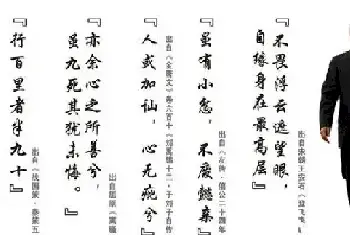 『不畏浮云遮望眼，
自缘身在最高层』
出自宋朝王安石《登飞
『虽有小忿，不废懿亲』
出自《左传·僖公二十四年
『人或加讪，心无疵兮』
出自《全唐文》卷六百十《刘禹锡十二·子刘子自传
『亦余心之所善兮，
虽九死其犹未悔。』
出自屈原《离骚
『行百里者半九十』
出自《战国策·秦策五